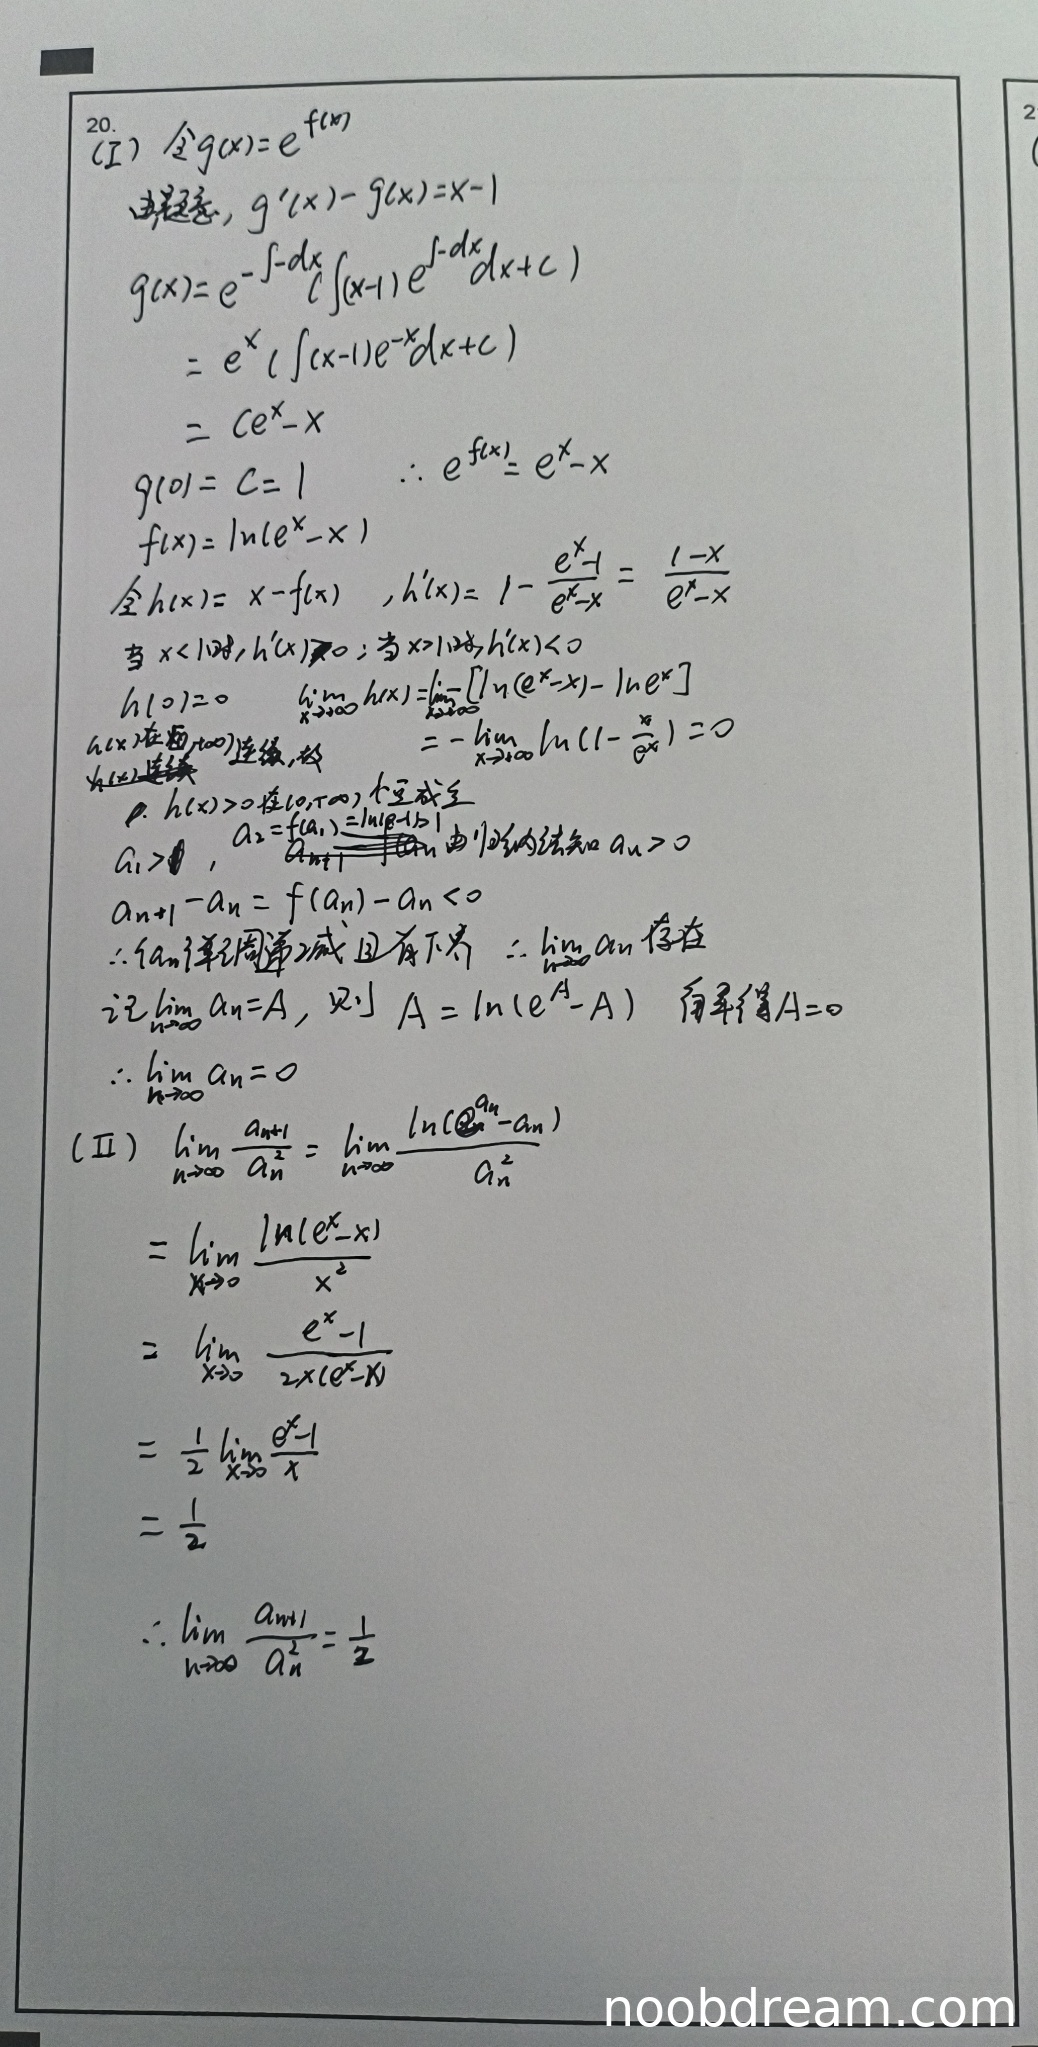 20.
(I) 令g(x)=e^{f(x)}
由题意, g'(x)-g(x)=x-1
g(x)=e^{-∫-dx}(∫(x-1)e^{∫-dx}dx+c)
=e^x(∫(x-1)e^{-x}dx+c)
=Ce^x-x
g(0)=C=1 ∴e^{f(x)}=e^x-x
f(x)=ln(e^x-x)
令h(x)=x-f(x) ,h'(x)=1-\frac{e^x-1}{e^x-x}=\frac{1-x}{e^x-x}
当x<1时,h'(x)>0;当x>1时,h'(x)<0
h(0)=0 lim_{x→+∞}h(x)=lim_{x→+∞}-[ln(e^x-x)-lne^x]
=-lim_{x→+∞}ln(1-\frac{x}{e^x})=0
h(x)在,+∞)连续,故
h(x)连续
h(x)>0在(0,+∞)恒成立
a_1> , a_2=f(a_1)=ln(e-1)
a_{n+1} 由归纳法知a_n>0
a_{n+1}-a_n=f(a_n)-a_n<0
∴{a_n}单调递减且有下界 ∴lim_{n→∞}a_n存在
记lim_{n→∞}a_n=A, 则A=ln(e^A-A) 解得A=0
∴lim_{n→∞}a_n=0
(II) lim_{n→∞}\frac{a_{n+1}}{a_n^2}=lim_{n→∞}\frac{ln(e^{a_n}-a_n)}{a_n^2}
=lim_{x→0}\frac{ln(e^x-x)}{x^2}
=lim_{x→0}\frac{e^x-1}{2x(e^x-x)}
=\frac{1}{2}lim_{x→0}\frac{e^x-1}{x}
=\frac{1}{2}
∴lim_{n→∞}\frac{a_{n+1}}{a_n^2}=\frac{1}{2}
noobdream.com